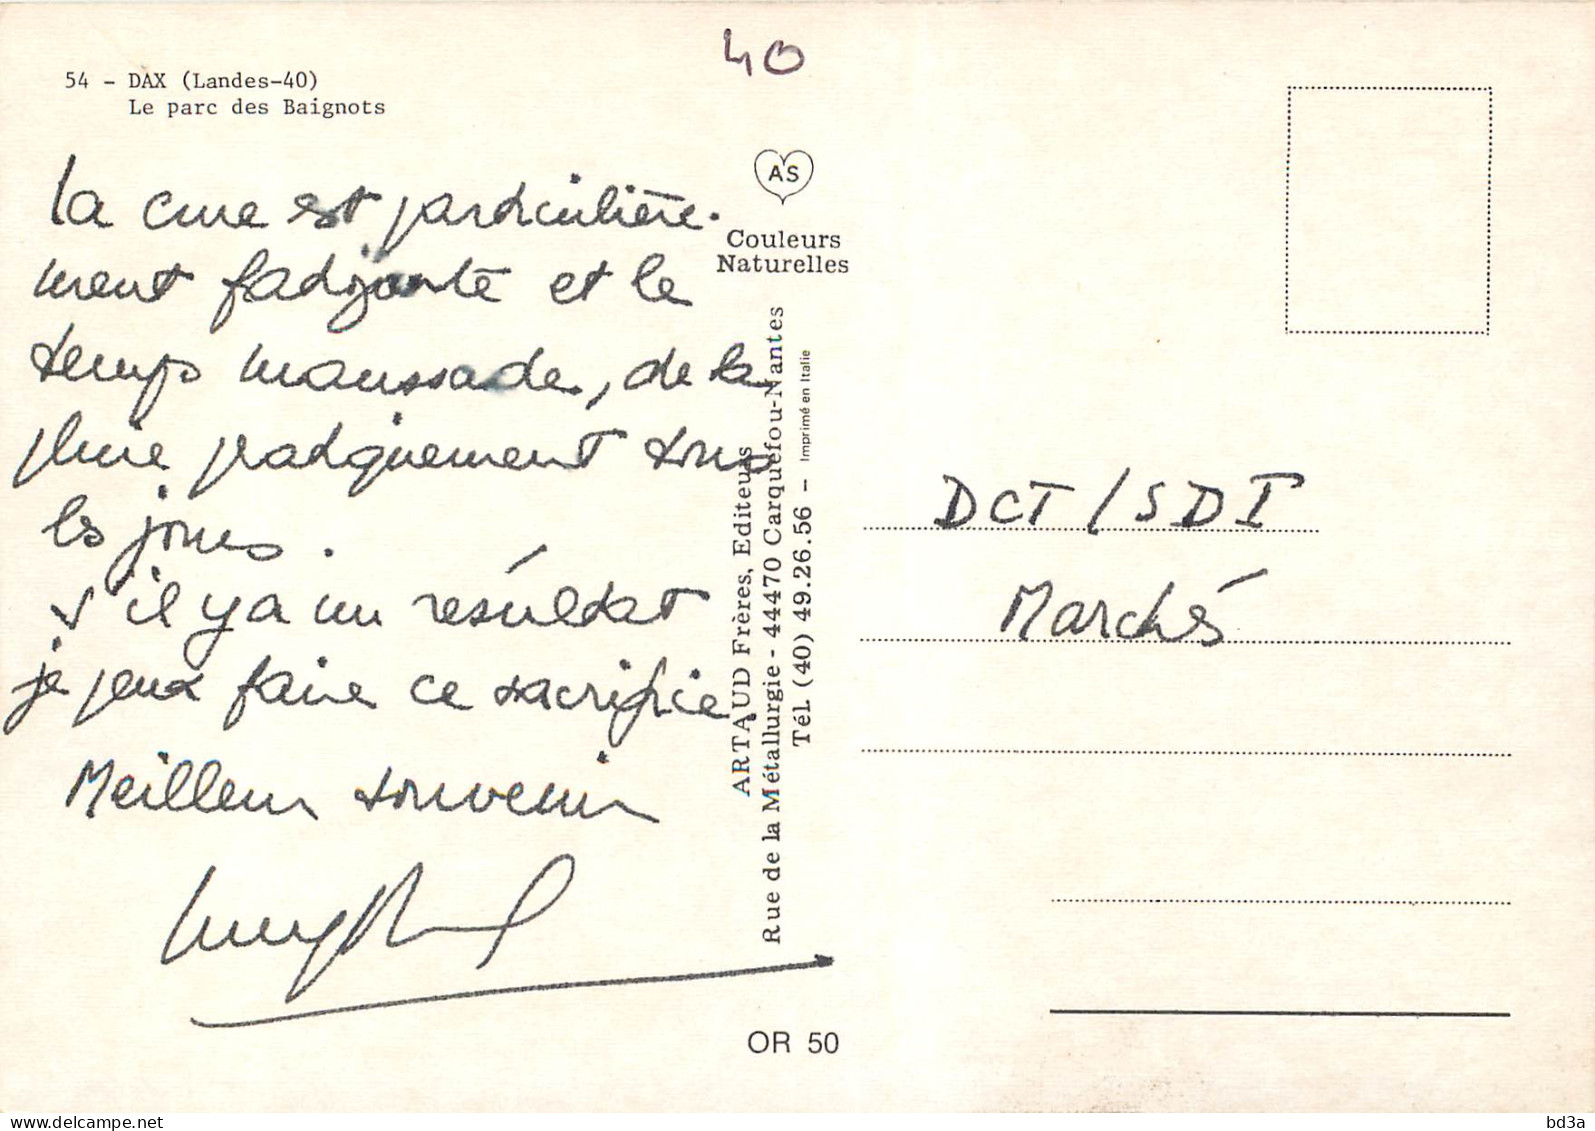 40
54 - DAX (Landes-40)
Le parc des Baignots
la cure est particulière.
ment fatigante et le
temps maussade, de la
pluie pratiquement tous
les jours.
s'il y a un résultat
je peux faire ce sacrifice.
Meilleur souvenir
AS
Couleurs
Naturelles
ARTAUD Frères, Editeurs
Rue de la Métallurgie - 44470 Carquefou-Nantes
Tél. (40) 49.26.56 - Imprimé en Italie
OR 50
DCT / SDI
Marchés
delcampe.net
bd3a